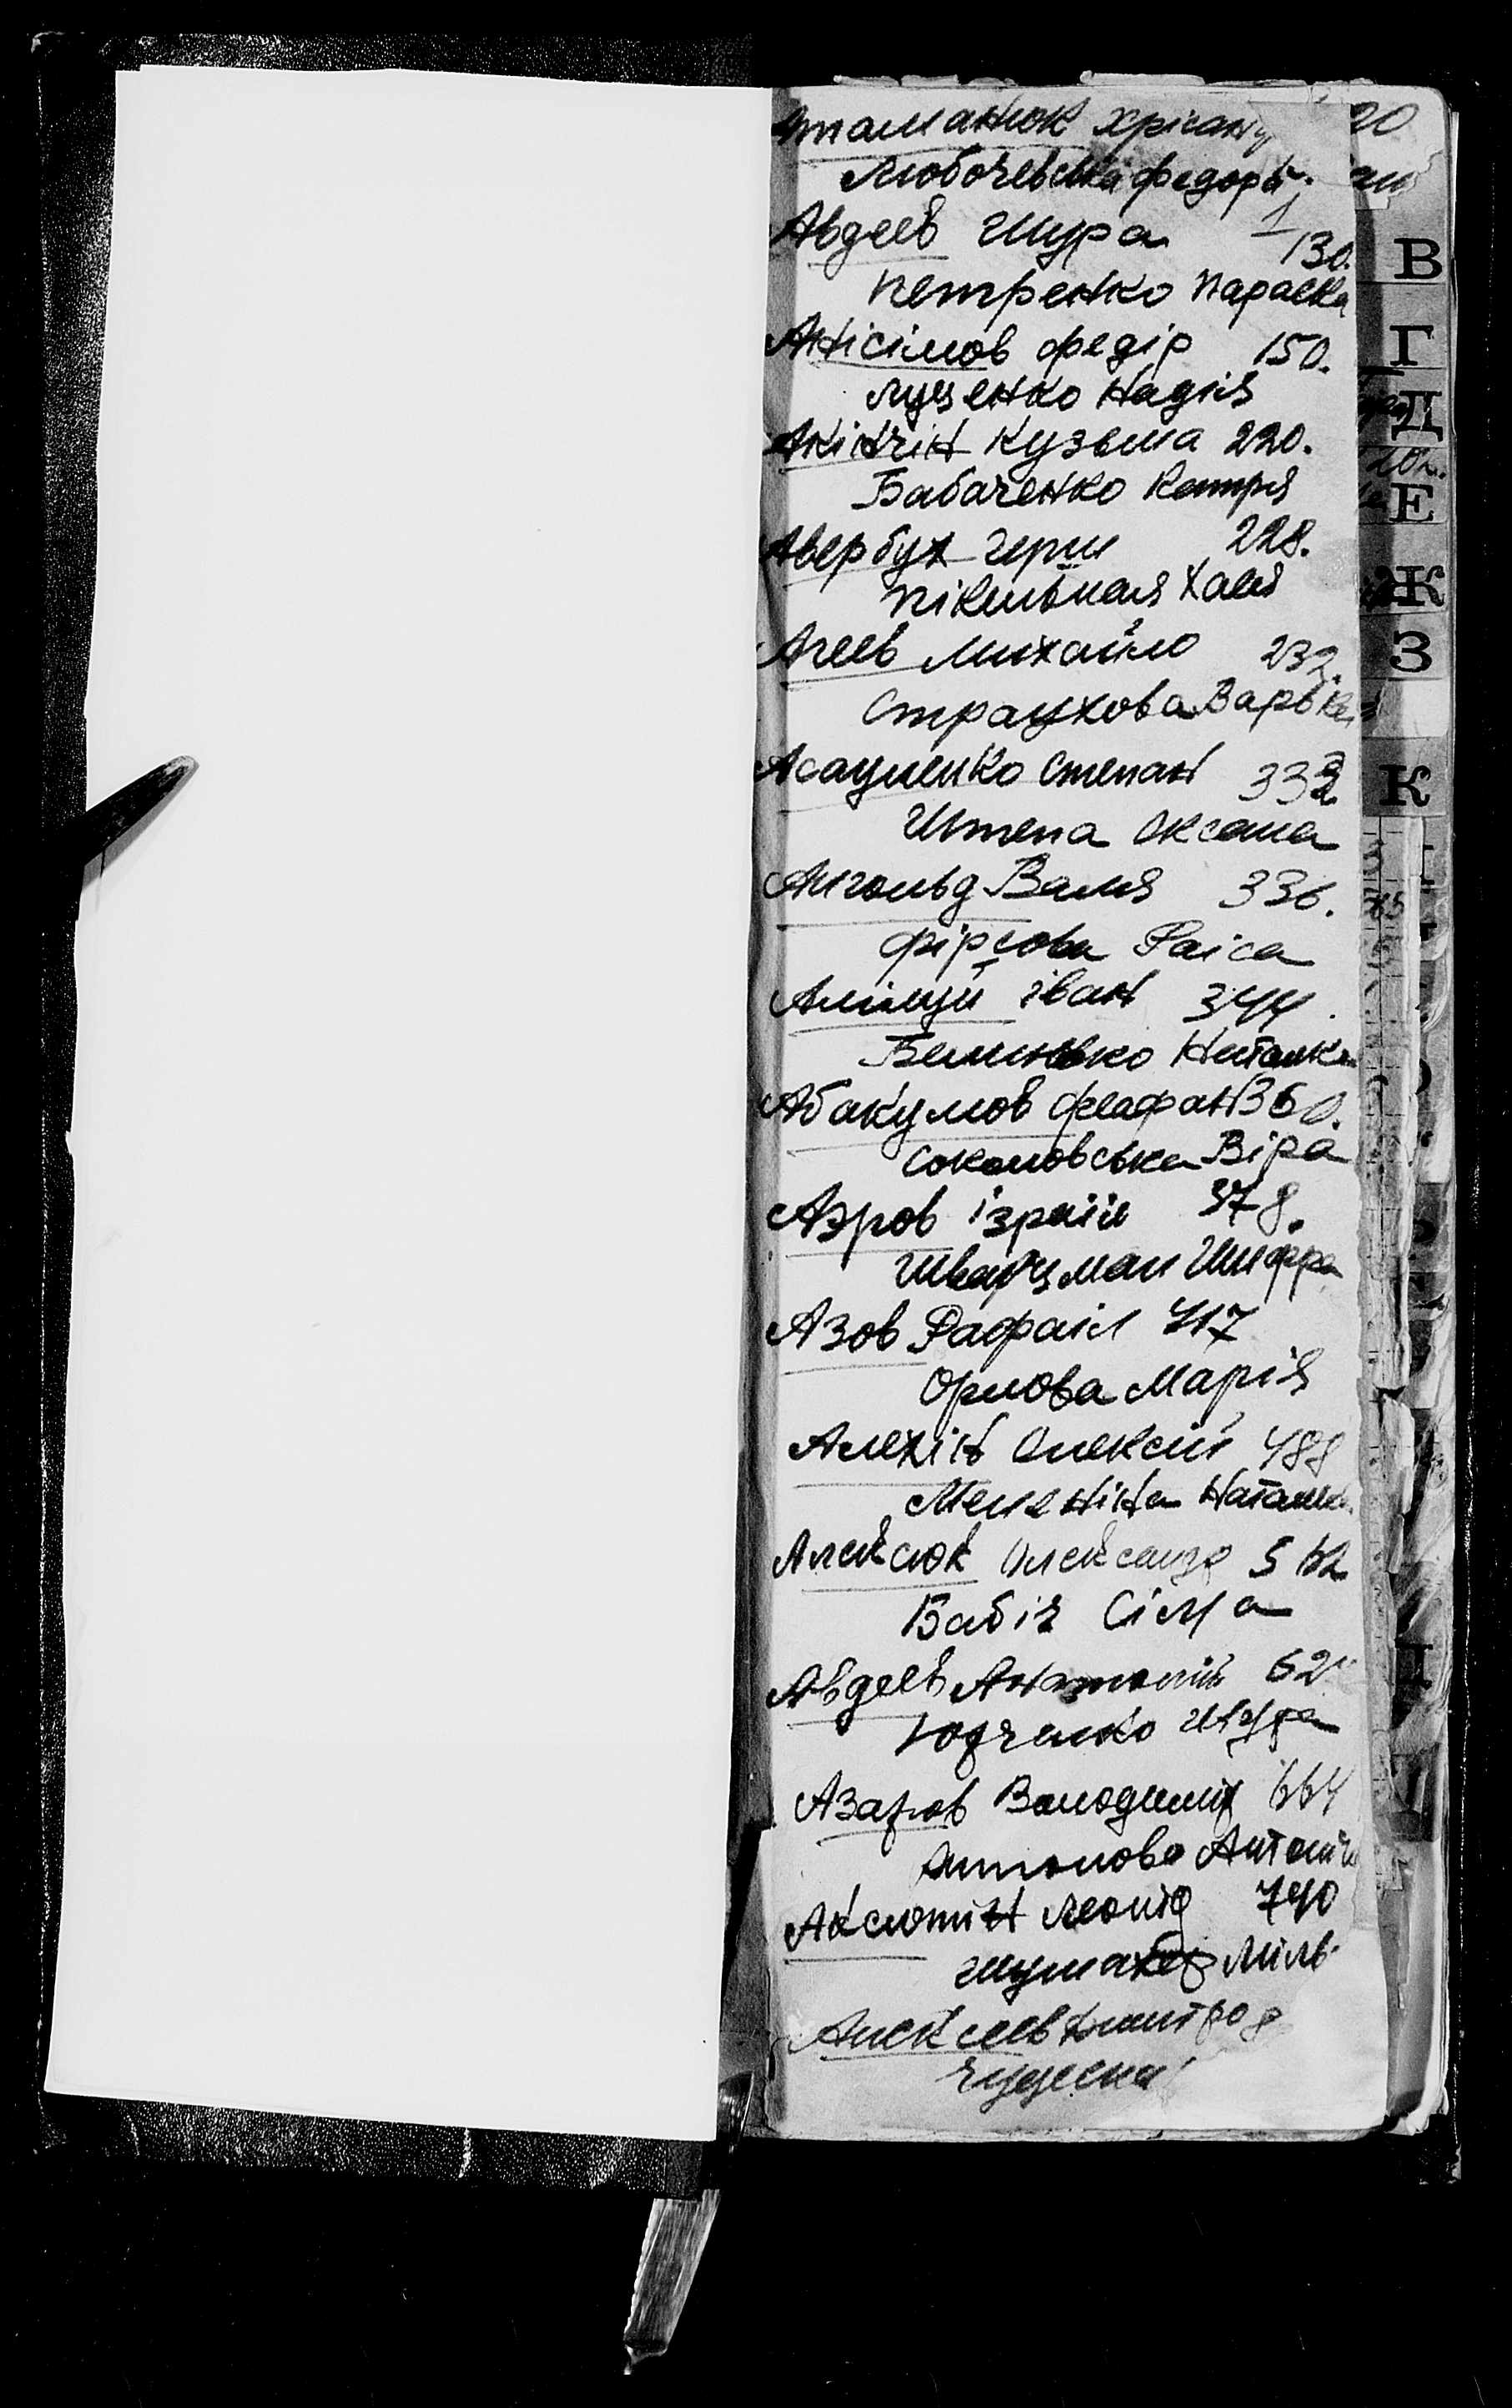 Атаманюк Хрісант 20
Любочевська Федора
Авдеев Шура 1
130.
Петренко Параска
Анісімов Федір 150.
Луценко Надія
Акінчін Кузьма 220.
Бабаченко Катря
Авербух Герш 228.
Хая
Агеев Михайло 232.
Страухова Варька
Асауленко Степан 332
Штепа Оксана
Ангольд Валя 336.
Фірсова Раіса
Іван 344.
Наталка
Абакумов Феофан 360.
Соколовська Віра
Аэров Ізраїл 378.
Шварцман Шифра
Азов Рафаіл 417
Орлова Марія
Алехін Олексій 488
Меленіна Наталка
Алексюк Олександр 562
Бабіч Сіма
Авдеев Анатолій 62
Юрченко Шура
Азаров Володимир 664
Антонова Антоніна
Аксютин Леонід 740
Шумахер
Алексеев
В
Г
Д
20
Е
Ж
З
К